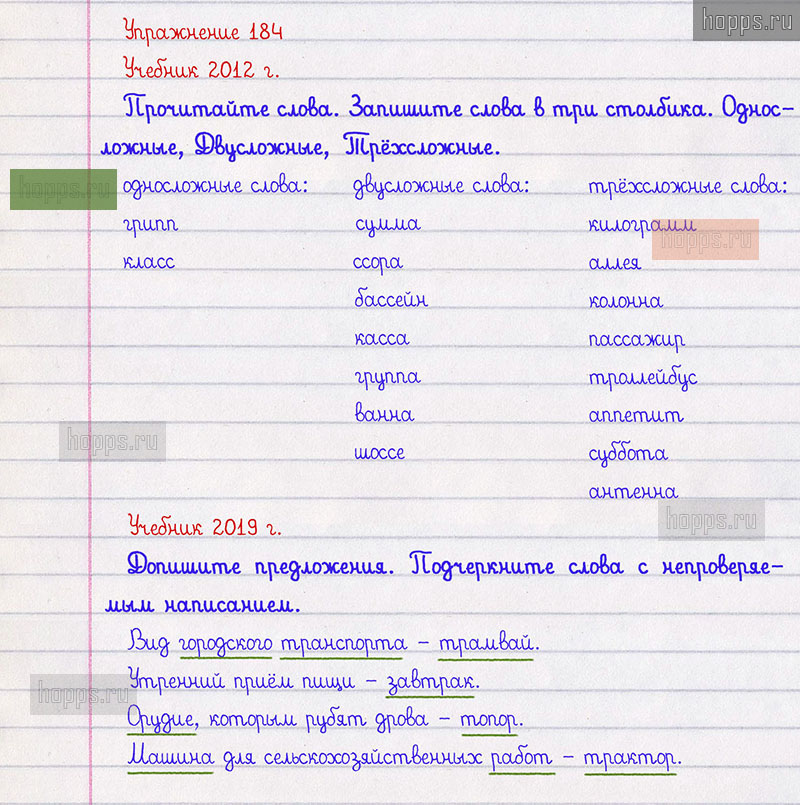 hopps.ru
Упражнение 184
Учебник 2012 г.
Прочитайте слова. Запишите слова в три столбика. Однос-
ложные, Двусложные, Трёхсложные.
hopps.ru
односложные слова: двусложные слова: трёхсложные слова:
грипп сумма килограмм
hopps.ru
класс ссора аллея
бассейн колонна
касса пассажир
группа троллейбус
ванна аппетит
hopps.ru
шоссе суббота
антенна
hopps.ru
Учебник 2019 г.
Допишите предложения. Подчеркните слова с непроверяе-
мым написанием.
Вид городского транспорта – трамвай.
Утренний приём пищи – завтрак.
hopps.ru
Орудие, которым рубят дрова – топор.
Машина для сельскохозяйственных работ – трактор.